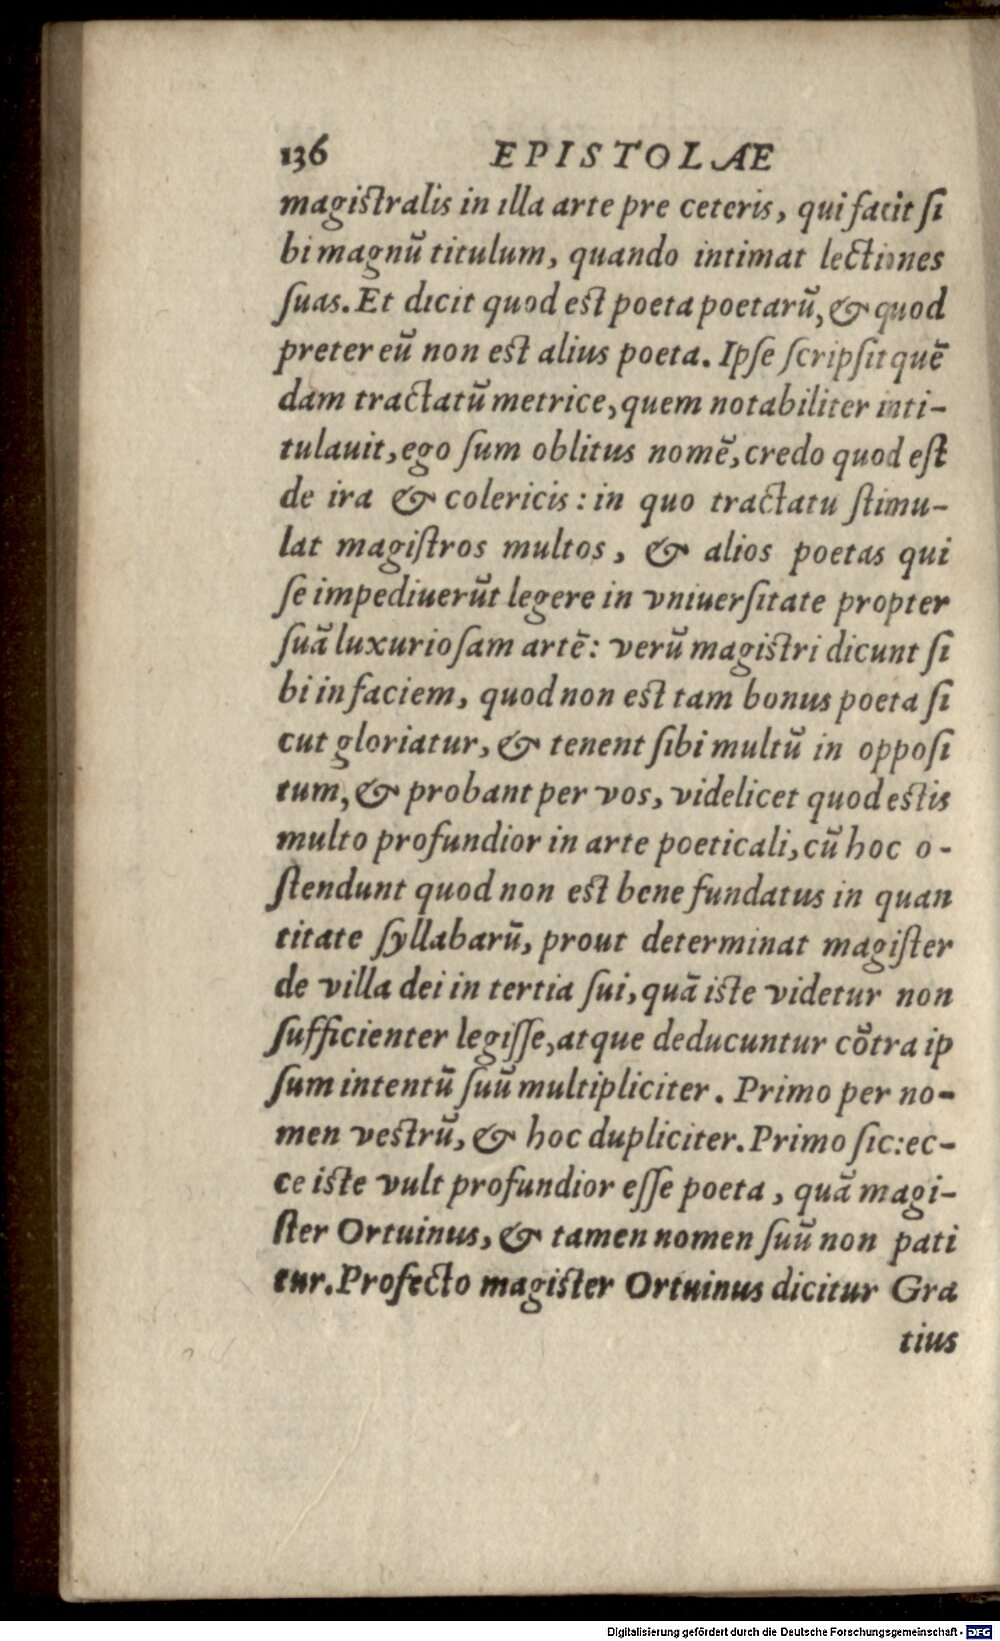 136 EPISTOLAE
magistralis in illa arte pre ceteris, qui facit ſi
bi magnũ titulum, quando intimat lectiones
ſuas. Et dicit quod est poeta poetarũ, & quod
preter eũ non est alius poeta. Ipſe ſcripſit quẽ
dam tractatũ metrice, quem notabiliter inti-
tulauit, ego ſum oblitus nomẽ, credo quod eſt
de ira & colericis: in quo tractatu ſtimu-
lat magiſtros multos, & alios poetas qui
ſe impediuerũt legere in vniuerſitate propter
ſuã luxurioſam artẽ: verũ magistri dicunt ſi
bi in faciem, quod non est tam bonus poeta ſi
cut gloriatur, & tenent ſibi multũ in oppoſi
tum, & probant per vos, videlicet quod estis
multo profundior in arte poeticali, cũ hoc o-
ſtendunt quod non est bene fundatus in quan
titate ſyllabarũ, prout determinat magiſter
de villa dei in tertia ſui, quã iste videtur non
ſufficienter legiſſe, atque deducuntur cõtra ip
ſum intentũ ſuũ multipliciter. Primo per no-
men vestrũ, & hoc dupliciter. Primo ſic: ec-
ce iste vult profundior eſſe poeta, quã magi-
ſter Ortuinus, & tamen nomen ſuũ non pati
tur. Profecto magister Ortuinus dicitur Gra
tius
Digitalisierung gefördert durch die Deutsche Forschungsgemeinschaft - DFG